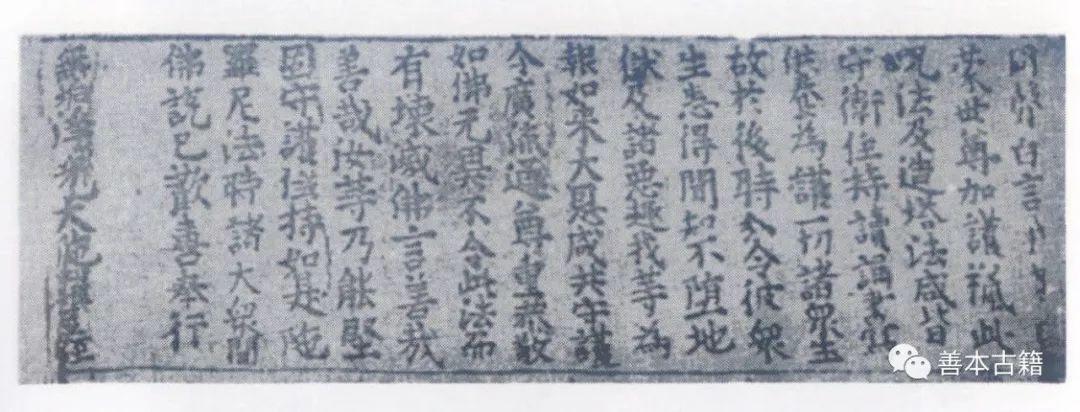 白言
蒙世尊加護授此
呪法及造塔法咸皆
守衛住持讀誦書寫
供養為護一切諸眾生
故於後時分令彼眾
生悉得聞知不墮地
獄及諸惡趣我等為
報如來大恩咸共守護
令廣流通尊重恭敬
如佛元異不令此法而
有壞滅佛言善哉
善哉汝等乃能堅
固守護住持如是陁
羅尼法時諸大眾聞
佛說已歡喜奉行
無垢淨光大陁羅尼經
善本古籍